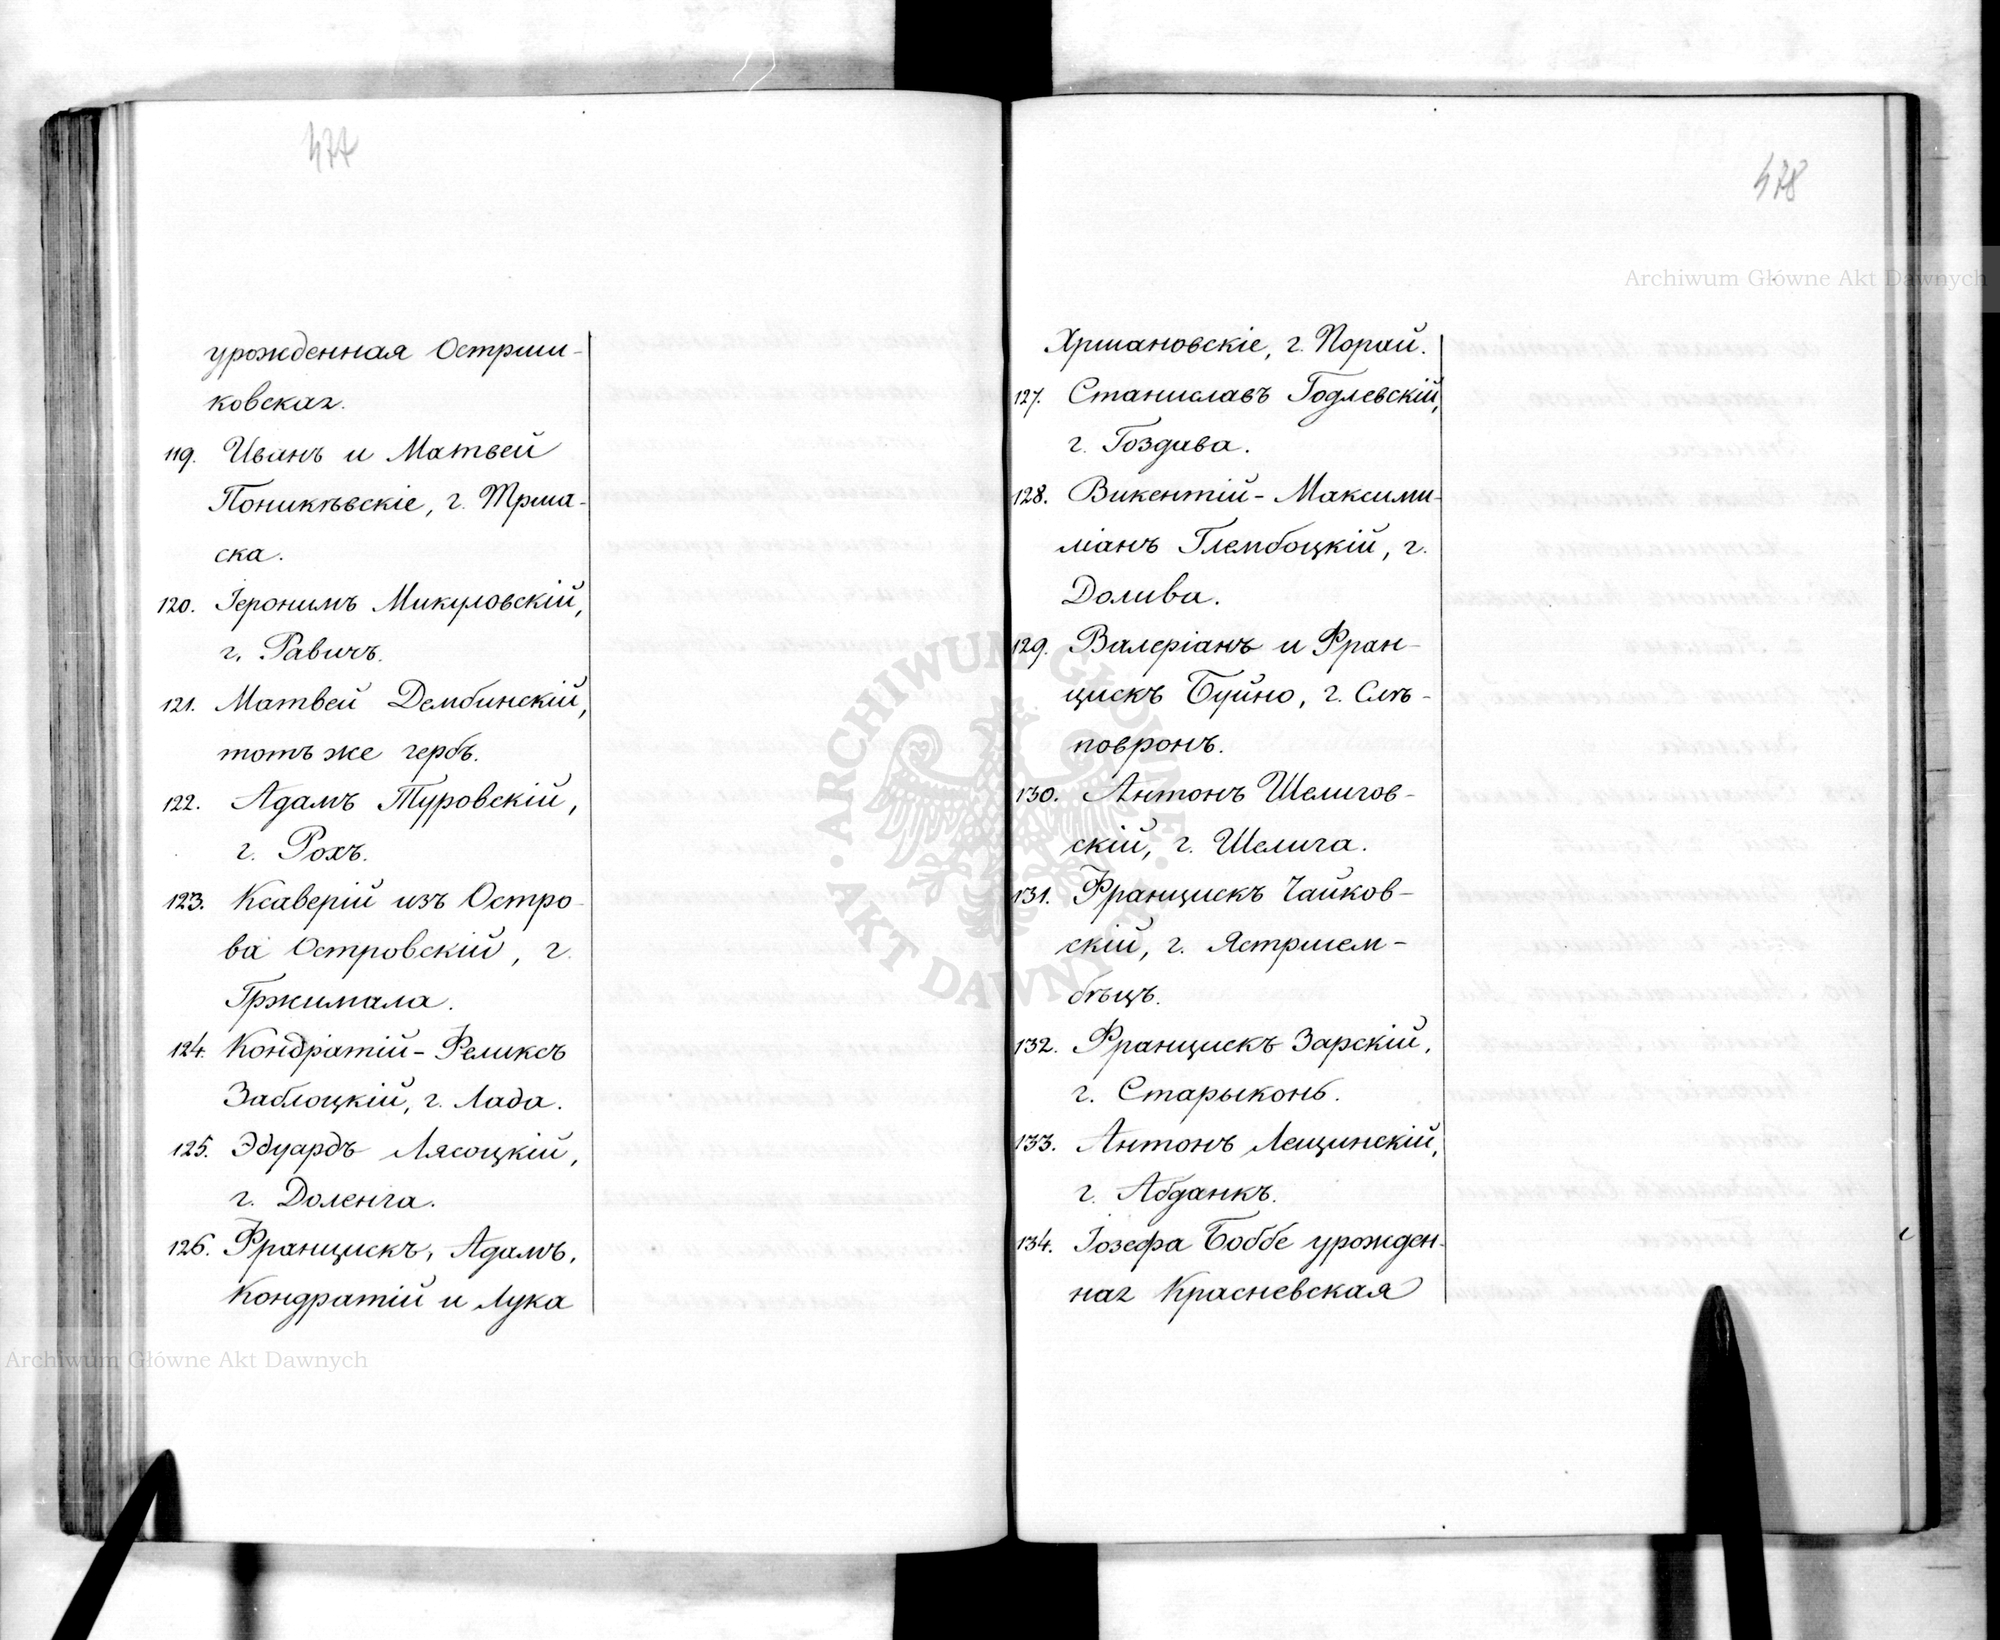 477
урожденная Остриш-
ковская.
119. Иванъ и Матвей
Поникѣвскіе, г. Тршa-
ска.
120. Іеронимъ Микуловскій,
г. Равичъ.
121. Матвей Дембинскій,
тотъ же гербъ.
122. Адамъ Туровскій,
г. Рохъ.
123. Ксаверій изъ Остро-
ва Островскій, г.
Гржимала.
124. Кондратій-Феликсъ
Заблоцкій, г. Лада.
125. Эдуардъ Лясоцкій,
г. Доленга.
126. Францискъ, Адамъ,
Кондратій и Лука
478
Хршановскіе, г. Порай.
127. Станиславъ Годлевскій,
г. Гоздава.
128. Викентій-Максими-
ліанъ Глембоцкій, г.
Долива.
129. Валеріанъ и Фран-
цискъ Буйно, г. Слѣ-
повронъ.
130. Антонъ Шелигов-
скій, г. Шелига.
131. Францискъ Чайков-
скій, г. Ястршем-
бѣцъ.
132. Францискъ Зарскій,
г. Старыконь.
133. Антонъ Лещинскій,
г. Абданкъ.
134. Іозефа Боббе урожден-
ная Красневская
Archiwum Główne Akt Dawnych
Archiwum Główne Akt Dawnych
ARCHIWUM GŁÓWNE AKT DAWNYCH